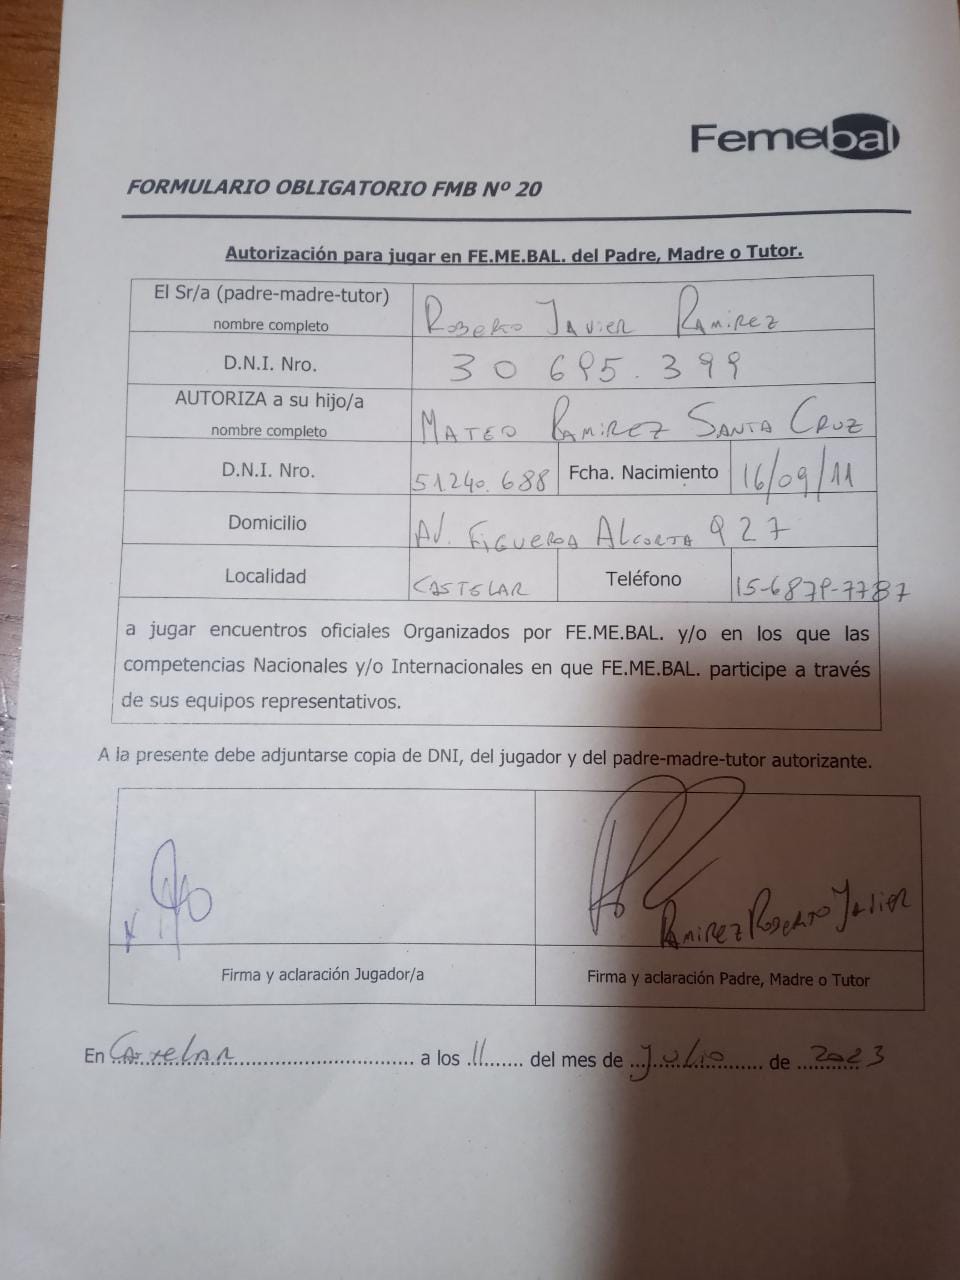 Femebal
FORMULARIO OBLIGATORIO FMB Nº 20
Autorización para jugar en FE.ME.BAL. del Padre, Madre o Tutor.
El Sr/a (padre-madre-tutor)
nombre completo
Roberto Javier Ramirez
D.N.I. Nro.
30 695.399
AUTORIZA a su hijo/a
nombre completo
Mateo Ramirez Santa Cruz
D.N.I. Nro. 51.240.688 Fcha. Nacimiento 16/09/11
Domicilio Av. Figueroa Alcorta 927
Localidad Castelar Teléfono 15-6879-7787
a jugar encuentros oficiales Organizados por FE.ME.BAL. y/o en los que las
competencias Nacionales y/o Internacionales en que FE.ME.BAL. participe a través
de sus equipos representativos.
A la presente debe adjuntarse copia de DNI, del jugador y del padre-madre-tutor autorizante.
Ramirez Roberto Javier
Firma y aclaración Jugador/a Firma y aclaración Padre, Madre o Tutor
En Castelar a los 11 del mes de Julio de 2023